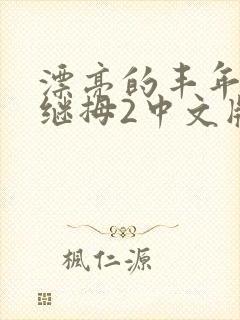 漂亮的丰年
继拇2中文版
楓仁源